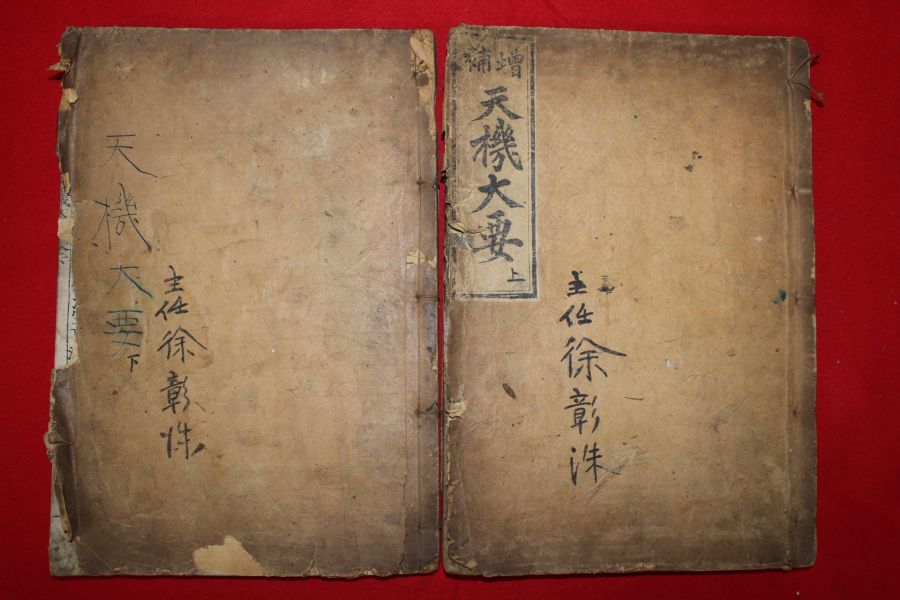 增補
天機大要
上
主任徐彰洙
天機大要
下
主任徐彰洙